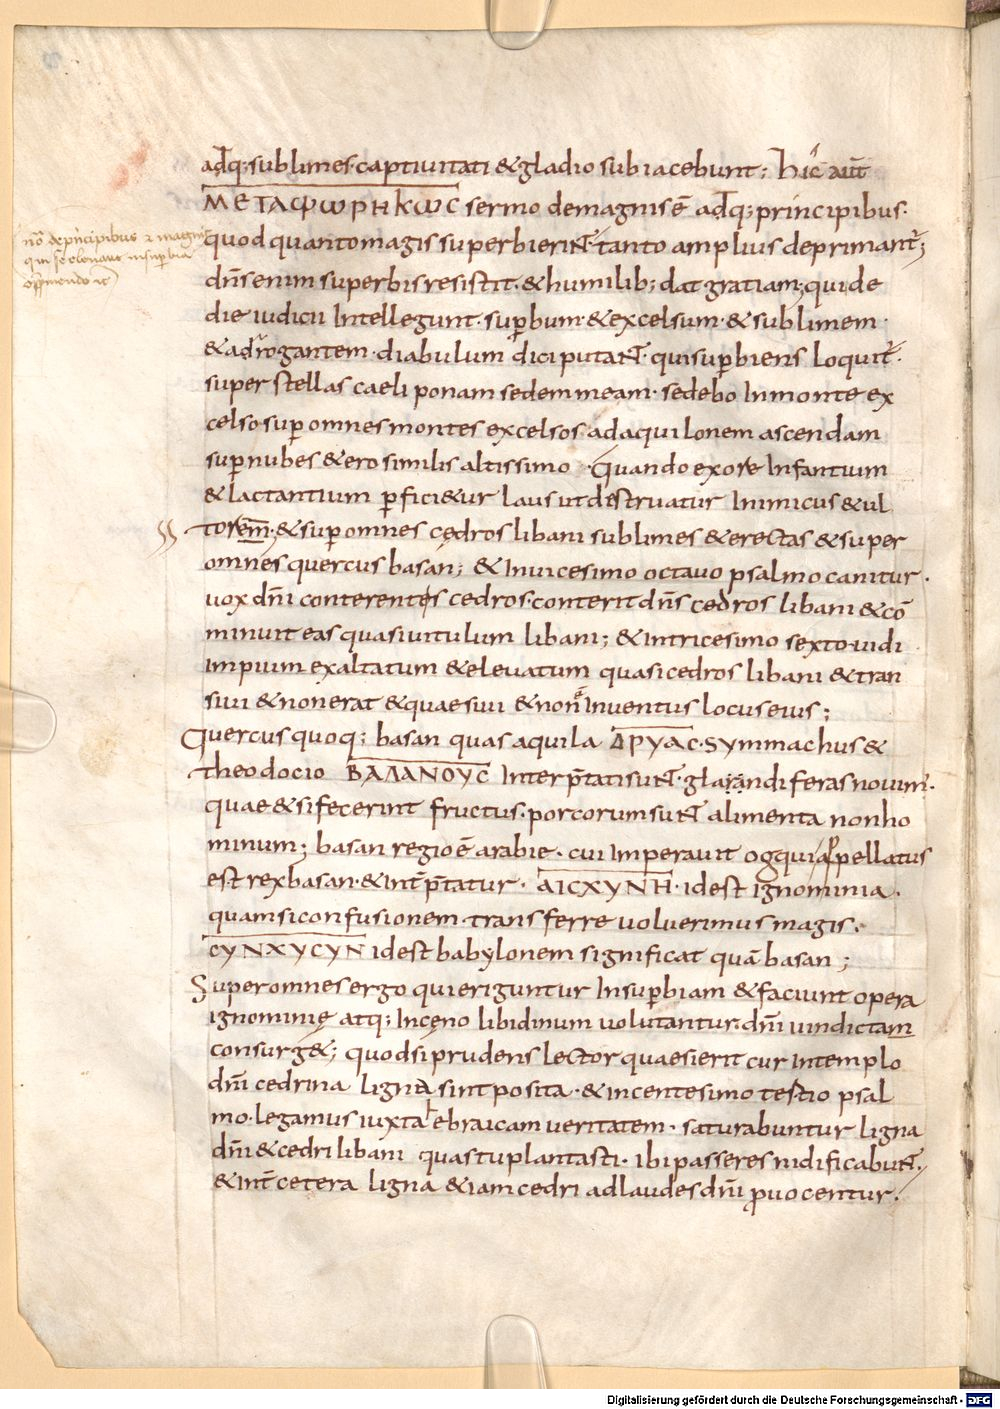 adq; sublimes· captiuitati & gladio subiacebunt; hic aut̄
ΜΕΤΑΦωΡΗΚωC sermo demagnis ē adq; principibus·
quod quantomagis superbierint· tanto amplius deprimant̄;
dn̄s enim superbis resistit· & humilib; dat gratiam; qui de
die iudicii Intellegunt· sup̱bum· & excelsum· & sublimem·
& adrogantem· diabulum dici putant· quisup̱biens loquit̄·
super stellas caeli ponam sedem meam· sedebo In monte ex
celso· sup̱ omnes montes excelsos· ad aquilonem ascendam
sup̱ nubes & ero similis altissimo· Quando exore Infantium
& lactantium p̱fici&ur laus ut destruatur Inimicus & ul
torem̄; & sup̱ omnes cędros libani sublimes & erectas & super
omnes quercus basan; & Inuicesimo octauo psalmo canitur·
uox dn̄i conterentis cedros· conterit dn̄s cedros libani & cō
minuit eas quasi uitulum libani; & Intricesimo sexto· uidi
Impium exaltatum & eleuatum quasi cedros libani & tran
siui & non erat & quaesiui & non ē Inuentus locus eius;
Quercus quoq; basan quas aquila ΔΡΥΑC· symmachus &
theodocio ΒΑΛΑΝΟΥC Interp̄tati sunt· glandiferas nouim̄·
quae & si fecerint fructus· porcorum sunt alimenta non ho
minum; basan regio ē arabie· cui Imperauit og qui appellatus
est rex basan· & Int̄p̄tatur· ΑΙCΧΥΝΗ· id est ignominia·
quam si confusionem· transferre uoluerimus magis·
CΥΝΧΥCΥΝ id est babylonem significat quā basan;
Super omnes ergo qui eriguntur Insup̱biam & faciunt opera
ignominię atq; Incęno libidinum uolutantur· dn̄i uindictam
consurg&; quod si prudens lector quaesierit cur Intemplo
dn̄i cedrina ligna sint posita· & incentesimo tertio psal
mo· legamus iuxta hebraicam ueritatem· saturabuntur ligna
dn̄i & cedri libani quas tu plantasti· ibi passeres nidificabunt·
& int̄ cetera ligna & iam cedri ad laudes dn̄i p̱uocentur·
Digitalisierung gefördert durch die Deutsche Forschungsgemeinschaft - DFG